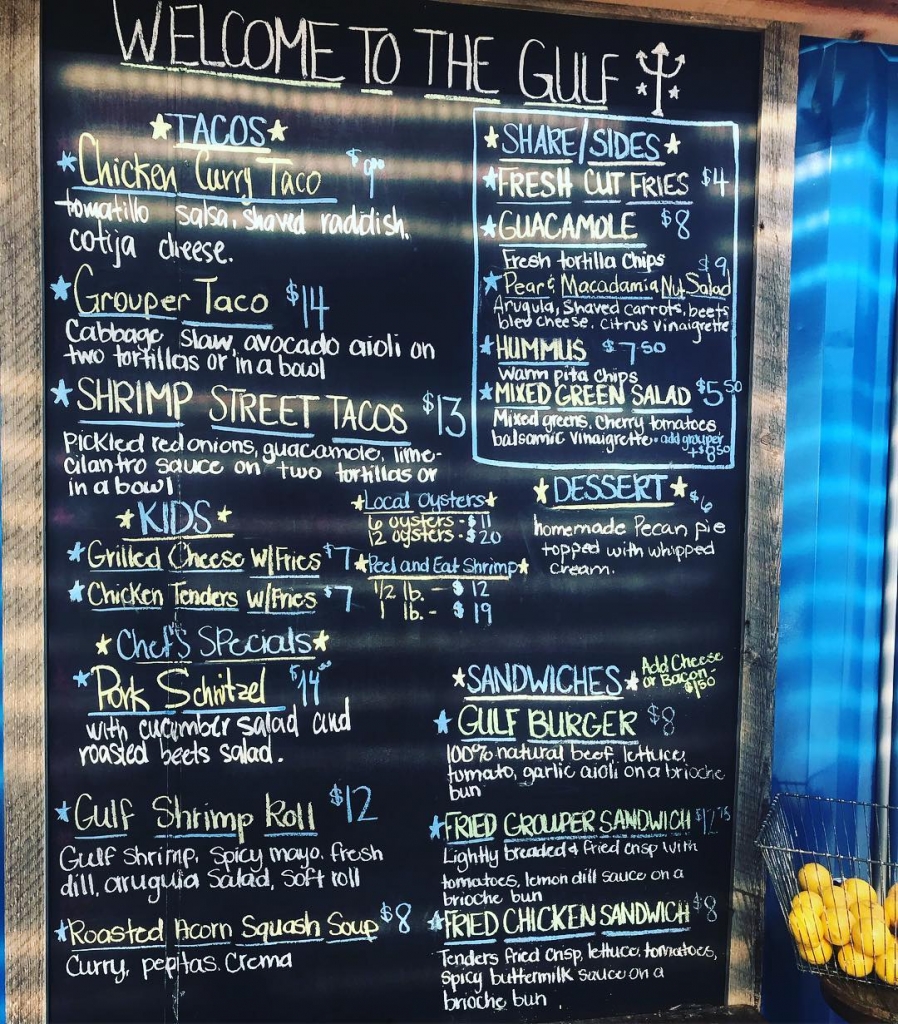 WELCOME TO THE GULF
TACOS
Chicken Curry Taco $9.00
tomatillo salsa, shaved raddish,
cotija cheese.
Grouper Taco $14
Cabbage slaw, avocado aioli on
two tortillas or in a bowl
SHRIMP STREET TACOS $13
Pickled red onions, guacamole, lime-
cilantro sauce on two tortillas or
in a bowl
KIDS
Grilled Cheese w/Fries $7
Chicken Tenders w/Fries $7
Local Oysters
6 oysters - $11
12 oysters - $20
Peel and Eat Shrimp
1/2 lb. - $12
1 lb. - $19
Chef's Specials
Pork Schnitzel $14.00
with cucumber salad and
roasted beets salad.
Gulf Shrimp Roll $12
Gulf shrimp, spicy mayo, fresh
dill, aruguia salad, soft roll
Roasted Acorn Squash Soup $8
Curry, pepitas. Crema
SHARE/SIDES
FRESH CUT FRIES $4
GUACAMOLE $8
Fresh tortilla Chips
Pear & Macadamia Nut Salad $9
Arugula, Shaved carrots, beets
bleu cheese, citrus vinaigrette
HUMMUS $7.50
Warm pita Chips
MIXED GREEN SALAD $5.50
Mixed greens, Cherry tomatoes
balsamic vinaigrette. add grouper
+$8.50
DESSERT $6
homemade Pecan pie
topped with whipped
cream.
SANDWICHES Add Cheese
or Bacon-
$1.50
GULF BURGER $8
100% natural beef, lettuce,
tomato, garlic aioli on a brioche
bun
FRIED GROUPER SANDWICH $12.75
Lightly breaded & fried crisp with
tomatoes, lemon dill sauce on a
brioche bun
FRIED CHICKEN SANDWICH $8
Tenders fried crisp, lettuce, tomatoes,
spicy buttermilk sauce on a
brioche bun